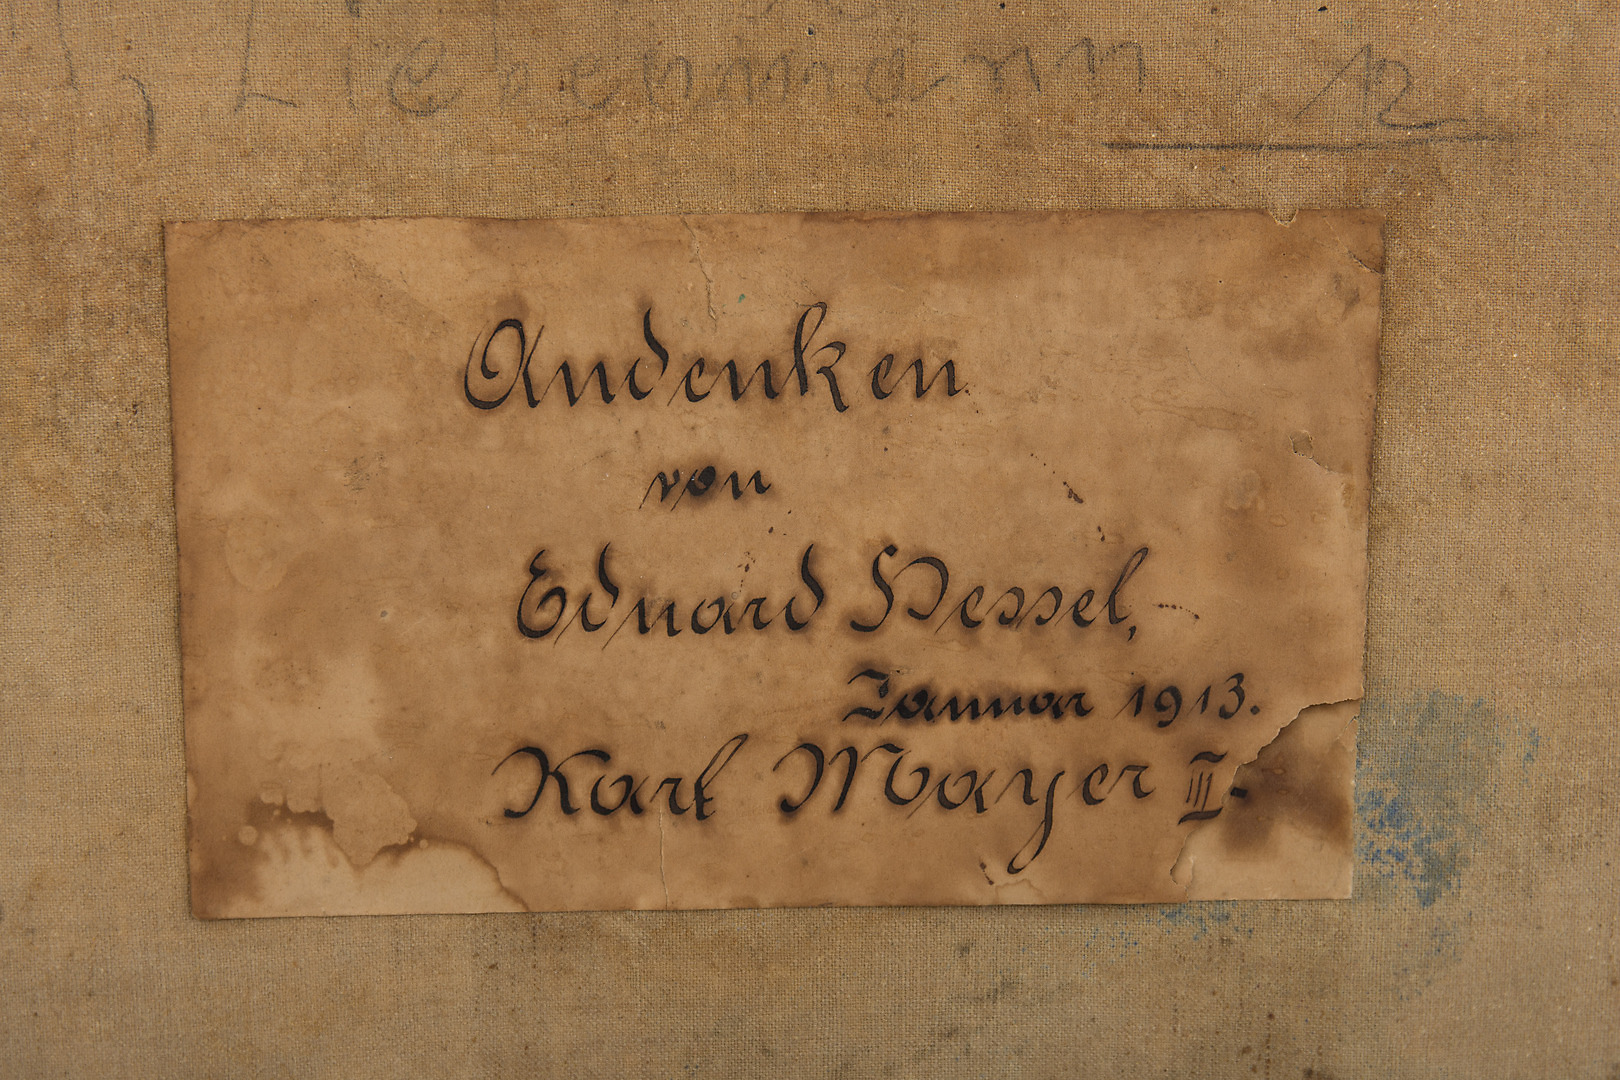 Liebermann 12
Andenken
von
Eduard Hessel,
Januar 1913.
Karl Mayer III.